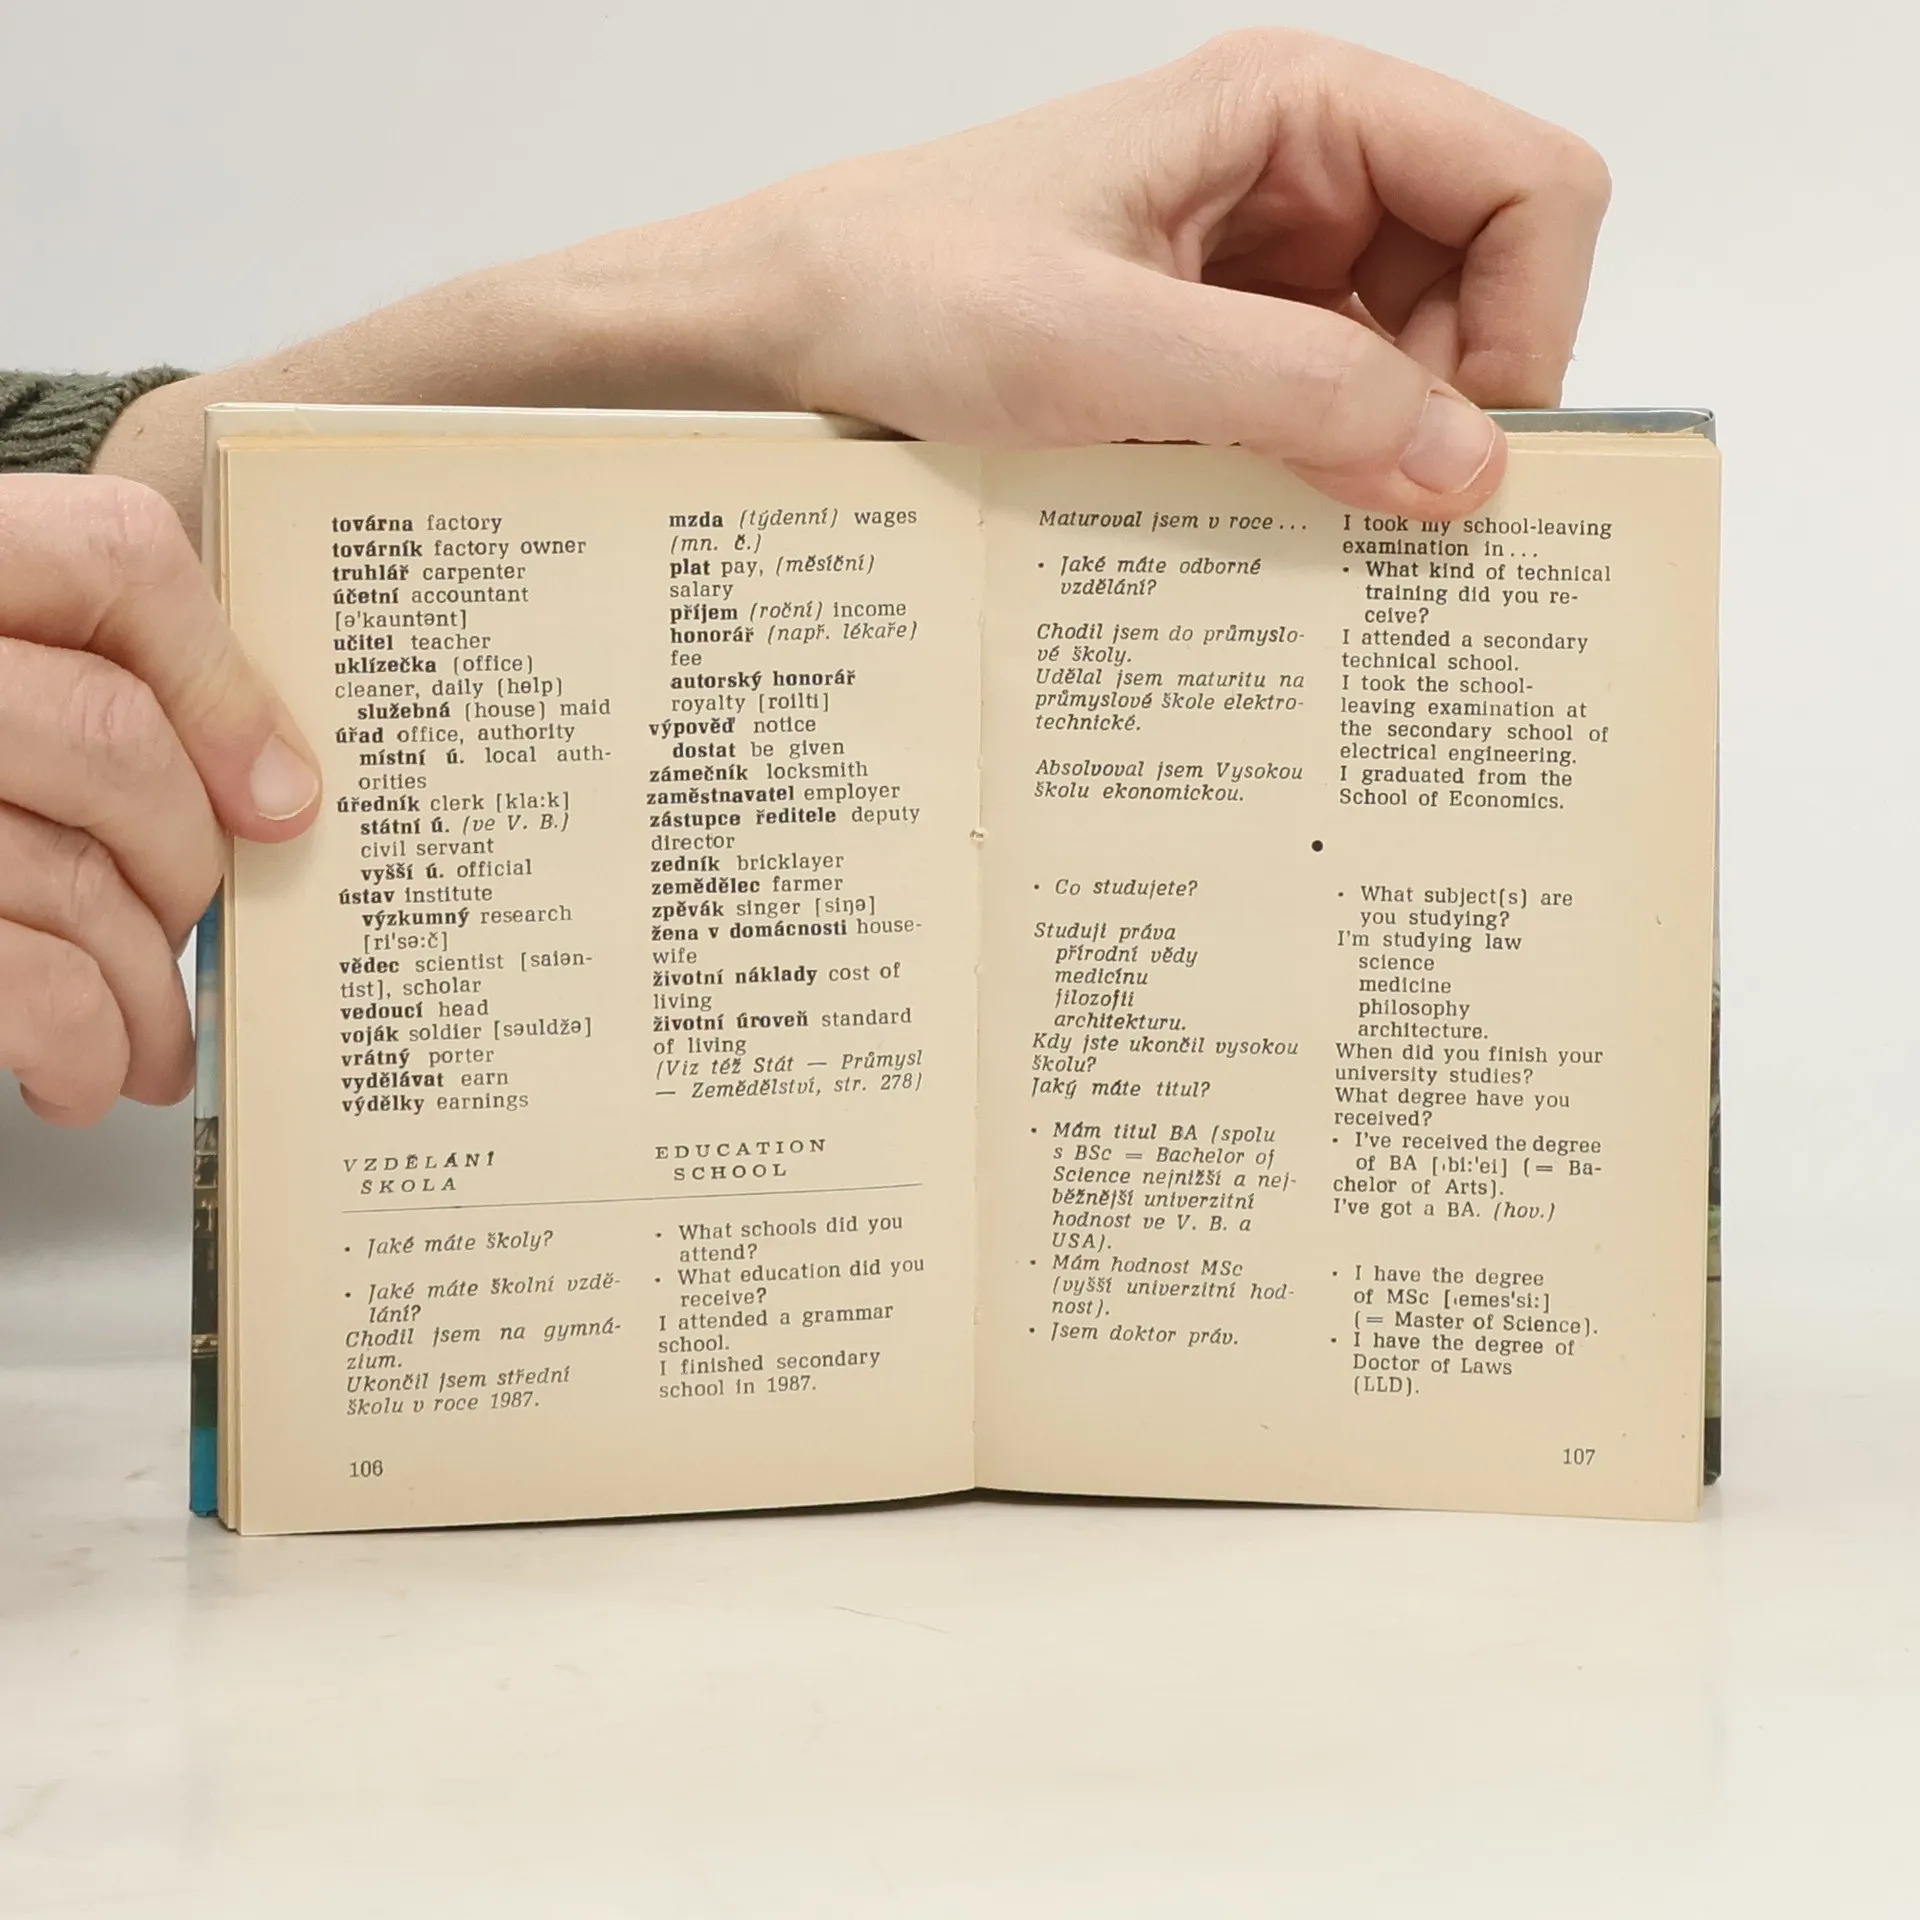 továrna factory
továrník factory owner
truhlář carpenter
účetní accountant
[ə'kauntənt]
učitel teacher
uklízečka (office)
cleaner, daily (help)
služebná (house) maid
úřad office, authority
místní ú. local auth-
orities
úředník clerk [kla:k]
státní ú. (ve V. B.)
civil servant
vyšší ú. official
ústav institute
výzkumný research
[ri'sə:č]
vědec scientist [saiən-
tist], scholar
vedoucí head
voják soldier [səuldžə]
vrátný porter
vydělávat earn
výdělky earnings
mzda (týdenní) wages
(mn. č.)
plat pay, (měsíční)
salary
příjem (roční) income
honorář (např. lékaře)
fee
autorský honorář
royalty [roilti]
výpověď notice
dostat be given
zámečník locksmith
zaměstnavatel employer
zástupce ředitele deputy
director
zedník bricklayer
zemědělec farmer
zpěvák singer [siŋə]
žena v domácnosti house-
wife
životní náklady cost of
living
životní úroveň standard
of living
(Viz též Stát — Průmysl
— Zemědělství, str. 278)
VZDĚLÁNÍ
ŠKOLA
EDUCATION
SCHOOL
• Jaké máte školy?
• Jaké máte školní vzdě-
lání?
Chodil jsem na gymná-
zium.
Ukončil jsem střední
školu v roce 1987.
• What schools did you
attend?
• What education did you
receive?
I attended a grammar
school.
I finished secondary
school in 1987.
106
Maturoval jsem v roce...
• Jaké máte odborné
vzdělání?
Chodil jsem do průmyslo-
vé školy.
Udělal jsem maturitu na
průmyslové škole elektro-
technické.
Absolvoval jsem Vysokou
školu ekonomickou.
I took my school-leaving
examination in...
• What kind of technical
training did you re-
ceive?
I attended a secondary
technical school.
I took the school-
leaving examination at
the secondary school of
electrical engineering.
I graduated from the
School of Economics.
•
• Co studujete?
Studuji práva
přírodní vědy
medicínu
filozofii
architekturu.
Kdy jste ukončil vysokou
školu?
Jaký máte titul?
• Mám titul BA (spolu
s BSc = Bachelor of
Science nejnižší a nej-
běžnější univerzitní
hodnost ve V. B. a
USA).
• Mám hodnost MSc
(vyšší univerzitní hod-
nost).
• Jsem doktor práv.
• What subject(s) are
you studying?
I'm studying law
science
medicine
philosophy
architecture.
When did you finish your
university studies?
What degree have you
received?
• I've received the degree
of BA [ˌbi:'ei] (= Ba-
chelor of Arts).
I've got a BA. (hov.)
• I have the degree
of MSc [ˌemes'si:]
(= Master of Science).
• I have the degree of
Doctor of Laws
(LLD).
107